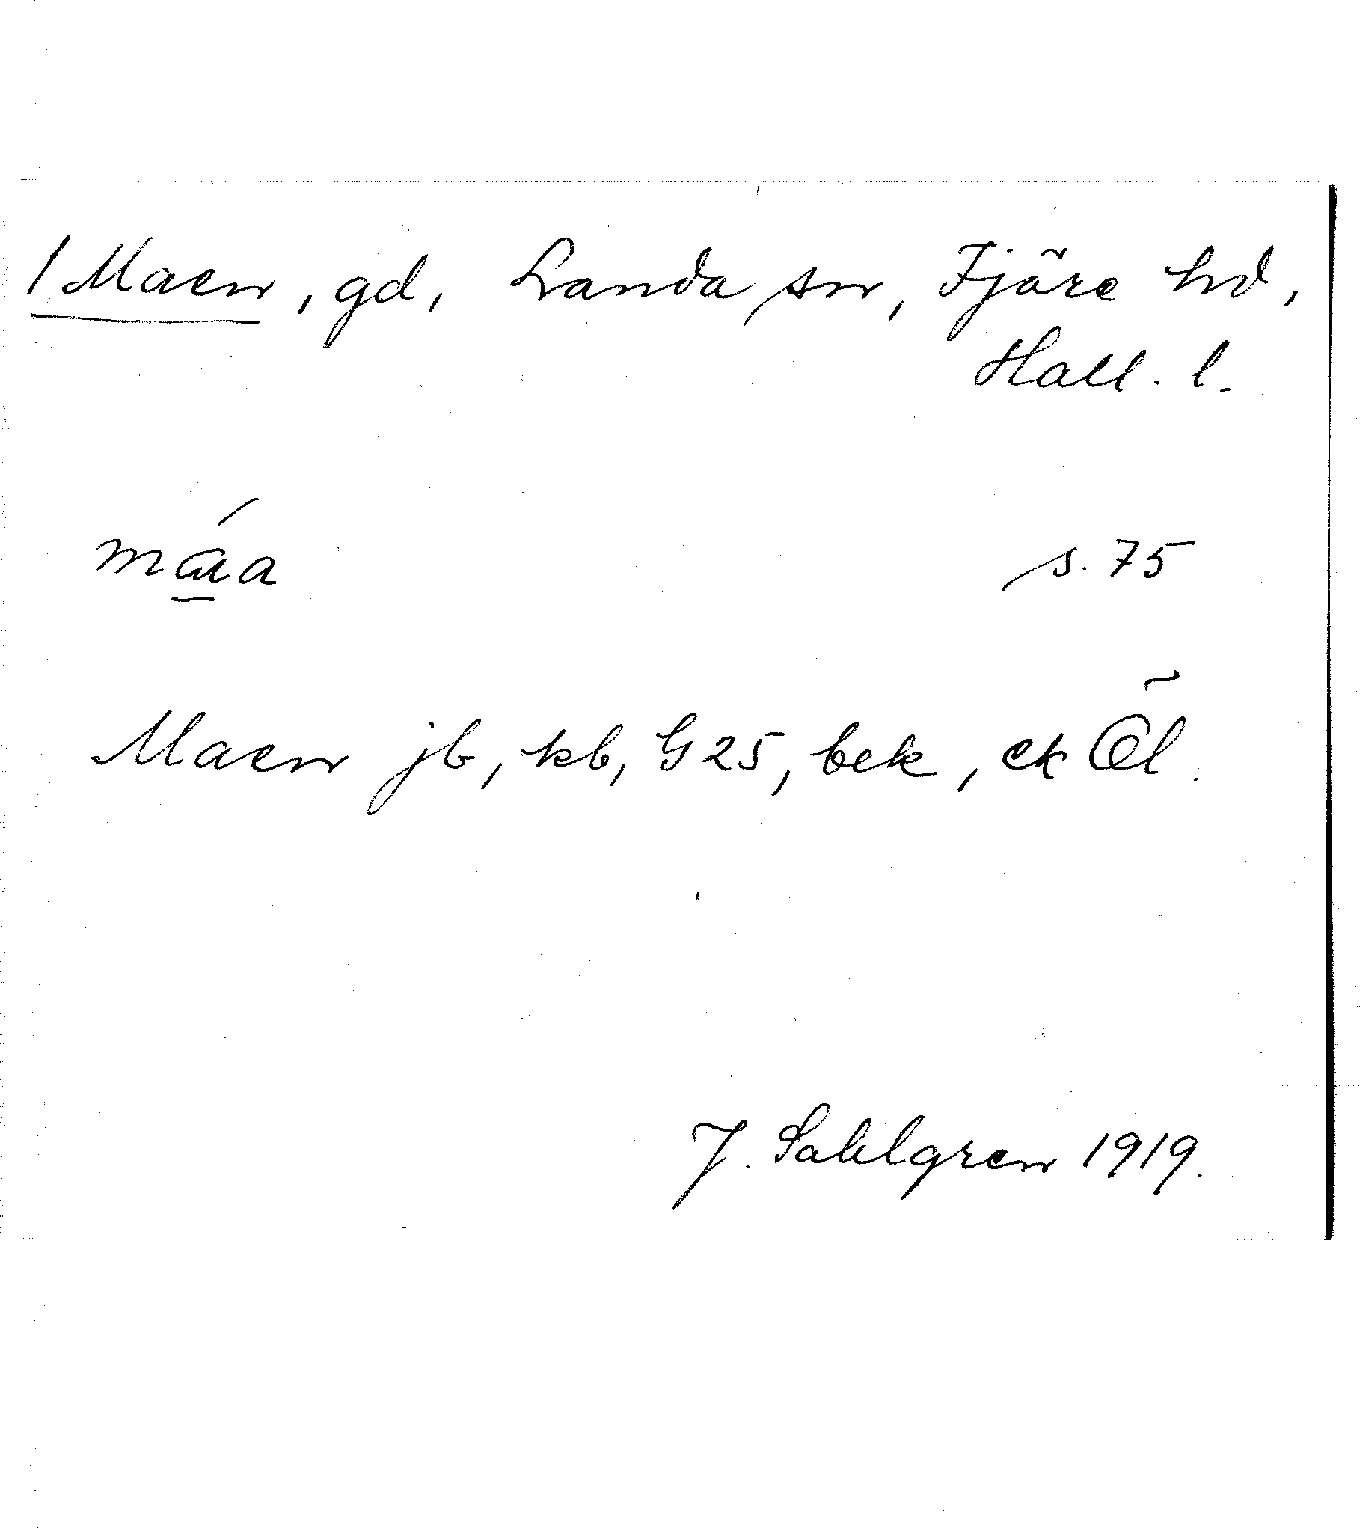 1 Maen, gd, Landa sn, Fjäre hd,
Hall. l.
máa s. 75
Maen jb, kb, G 25, bek, ek Öl.
J. Sahlgren 1919.